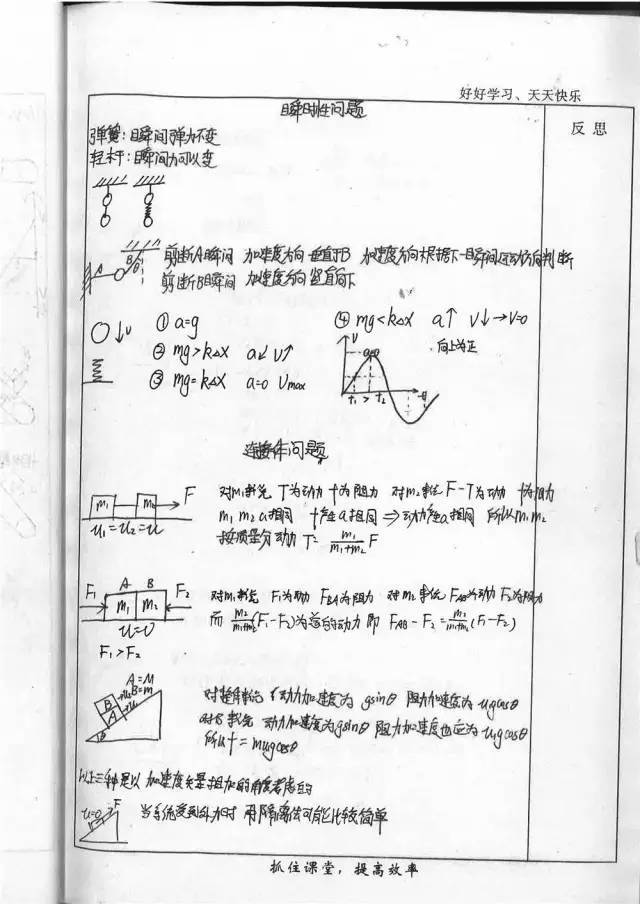 好好学习、天天快乐
反思
瞬时性问题
弹簧：瞬间弹力不变
轻杆：瞬间力可以变
A B θ
剪断A瞬间 加速度方向垂直于B 加速度方向根据下一瞬间运动方向判断
剪断B瞬间 加速度方向竖直向下
↓v
① a=g
② mg>kΔx a↙ v↑
③ mg=kΔx a=0 Vmax
④ mg<kΔx a↑ v↓→v=0
向上为正
V a=0 t₁ t₂ t
连接体问题
m₁ m₂ F
u₁=u₂=u
对m₁ T为动力 f为阻力 对m₂ F-T为动力 f为阻力
m₁ m₂ a相同 f产生a相同 ⇒动力产生a相同 所以m₁m₂
按质量分动力 T=m₁/(m₁+m₂) F
F₁ A B F₂
m₁ m₂
u=0
F₁>F₂
对m₁ F₁为动力 FBA为阻力 对m₂ FAB为动力 F₂为阻力
而 m₂/(m₁+m₂)(F₁-F₂)为 的动力 即 FAB-F₂=m₂/(m₁+m₂)(F₁-F₂)
A=M
B=m
B A θ
对整体 动力加速度为 gsinθ 阻力加速度为 ugcosθ
对B 动力加速度为gsinθ 阻力加速度也应为 u₁gcosθ
所以f=mu₁gcosθ
以上三种是以加速度矢量相加的角度考虑的
u=0 F
当系统受到外力时 用隔离法可能比较简单
抓住课堂，提高效率